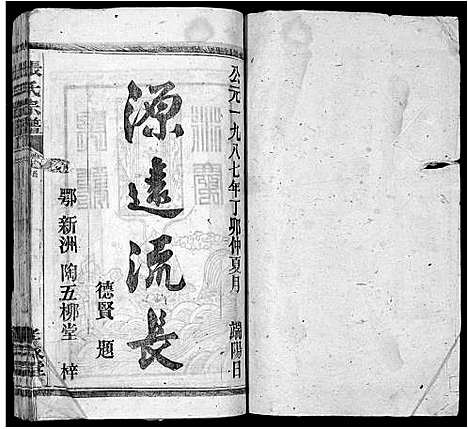 公元一九八七年丁卯仲夏月 端陽日
源遠流長
德賢 題
鄂新洲陶五柳堂 梓
張氏宗譜